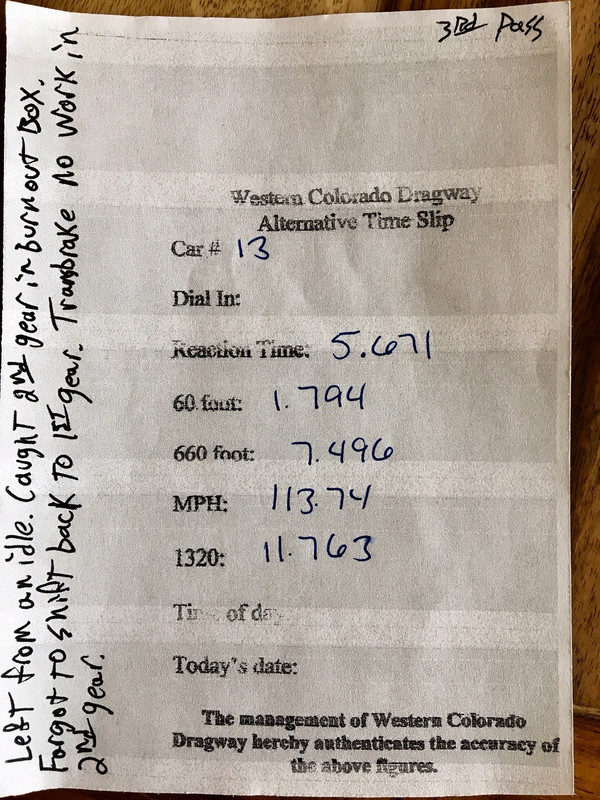 3RD Pass
Western Colorado Dragway
Alternative Time Slip
Car # 13
Dial In:
Reaction Time: 5.671
60 foot: 1.794
660 foot: 7.496
MPH: 113.74
1320: 11.763
Time of day
Today's date:
The management of Western Colorado
Dragway hereby authenticates the accuracy of
the above figures.
Left from an idle. Caught 2nd gear in burnout Box.
Forgot to shift back to 1ST gear. Transbrake no work in
2nd gear.